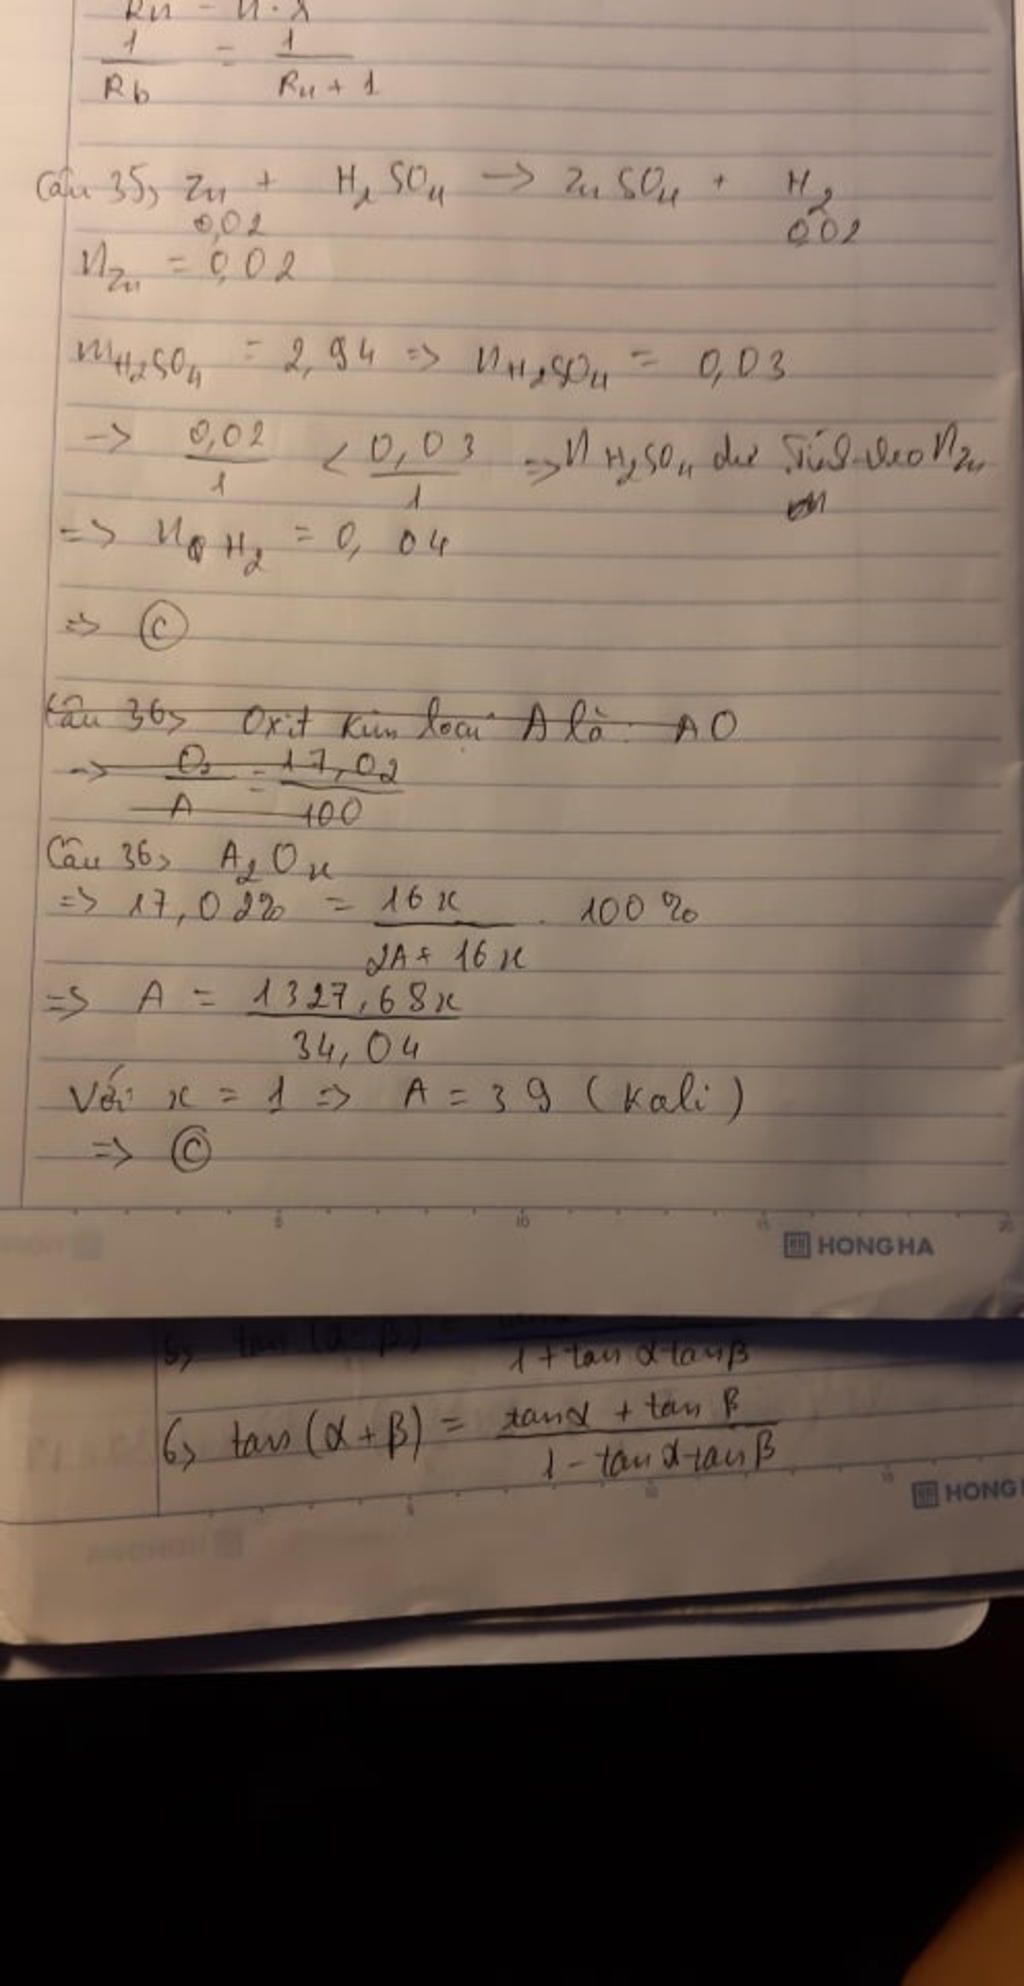 1/Rb = 1/Rn + 1
Câu 35> Zn + H₂SO₄ → ZnSO₄ + H₂
0,02 0,02
nZn = 0,02
mH₂SO₄ = 2,94 => nH₂SO₄ = 0,03
-> 0,02/1 < 0,03/1 => nH₂SO₄ dư Tính theo nZn
=> n H₂ = 0, 04
=> C
Câu 36> Oxit kim loại A là: AO
-> /A = 17,02/100
Câu 36> A₂Ox
=> 17,02% = 16x/(2A + 16x) . 100%
=> A = 1327,68x/34,04
Với x = 1 => A = 39 (Kali)
=> C
5 10 15 20
HONG HA
5> tan (α - β) =
1 + tan α tan β
6> tan (α + β) = (tan α + tan β)/(1 - tan α tan β)
5 10 15
HONG